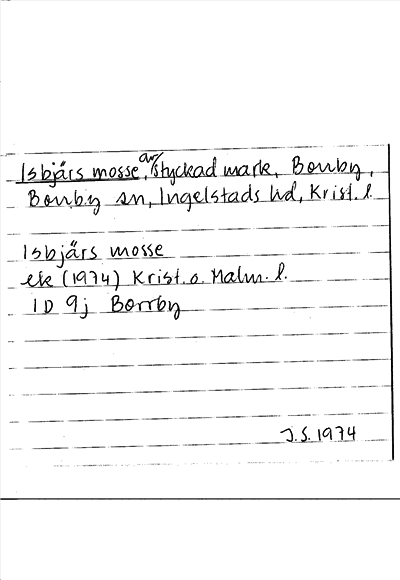 Isbjärs mosse, avstyckad mark, Borrby,
Borrby sn, Ingelstads hd, Krist. l.
Isbjärs mosse
ek (1974) Krist. o. Malm. l.
1D 9j Borrby
J.S. 1974